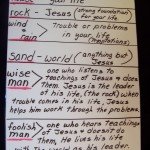 rock - Jesus (strong foundation for your life)
wind + rain } Trouble or problems in your life (temptations)
sand - world (anything but Jesus)
wise man } one who listens to
teachings of Jesus & does
them. Jesus is the leader
of his life, (the rock) when
trouble comes in his life, Jesus
helps him work through the problems.
foolish man } one who hears teachings
of Jesus & doesn't do
them. He lives his life